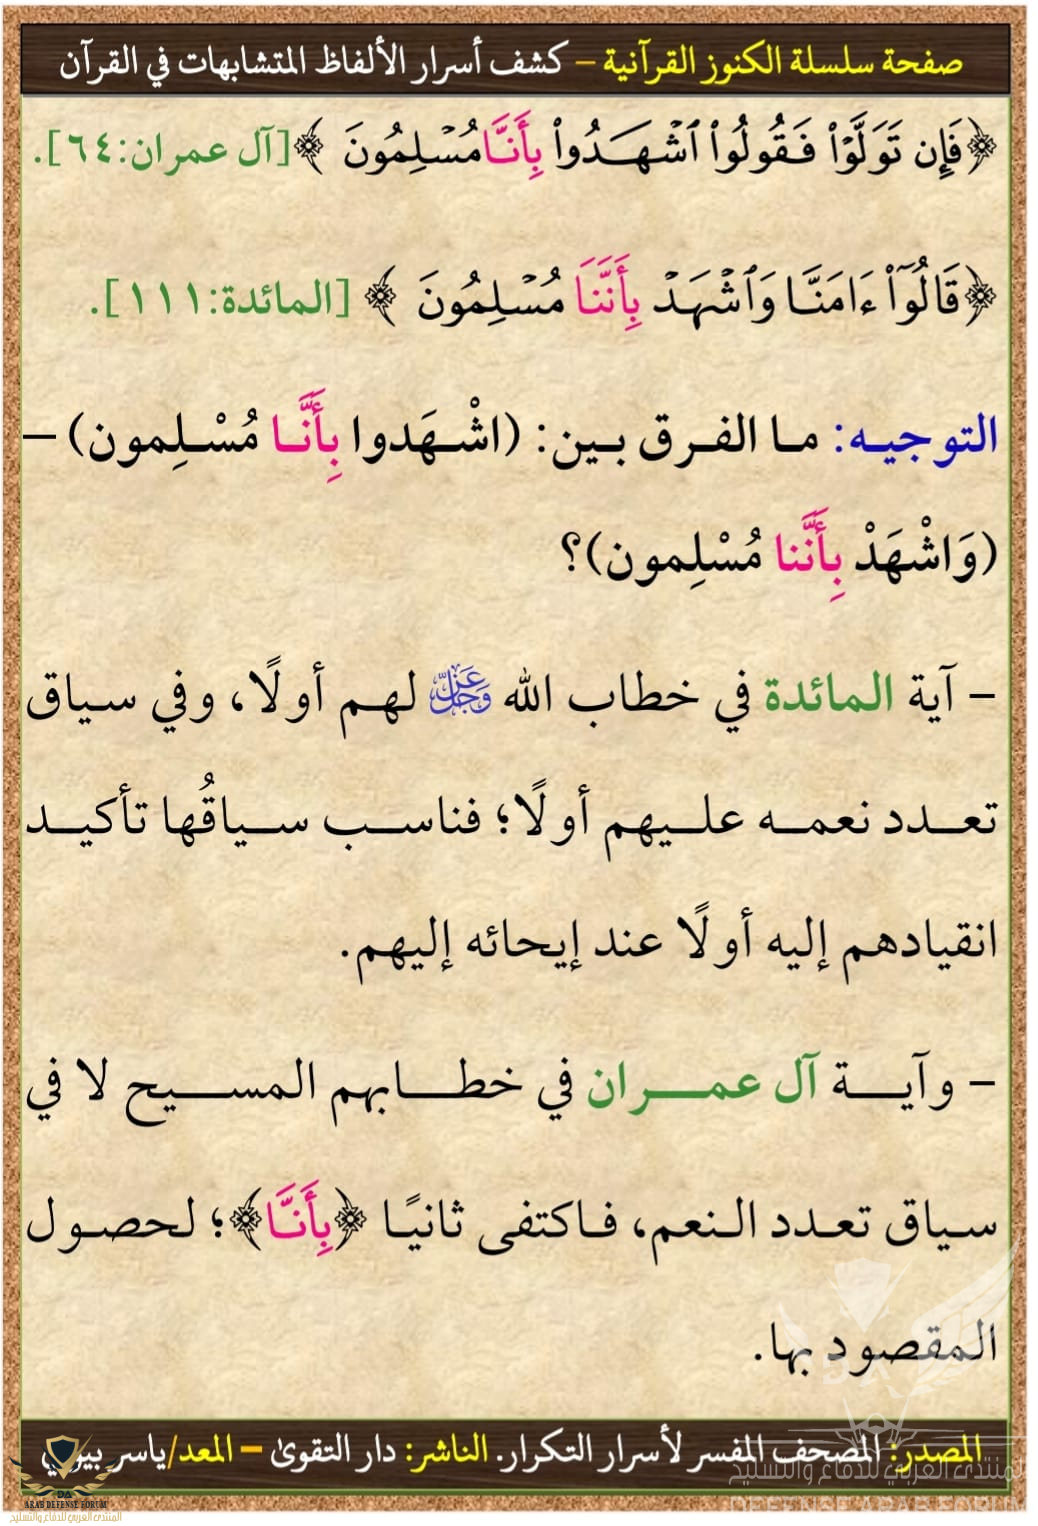 صفحة سلسلة الكنوز القرآنية – كشف أسرار الألفاظ المتشابهات في القرآن
﴿فَإِن تَوَلَّوۡاْ فَقُولُواْ ٱشۡهَدُواْ بِأَنَّا مُسۡلِمُونَ ﴾[آل عمران:٦٤].
﴿قَالُوٓاْ ءَامَنَّا وَٱشۡهَدۡ بِأَنَّنَا مُسۡلِمُونَ ﴾ [المائدة:١١١].
التوجيه: ما الفرق بين: (اشْهَدوا بِأَنَّا مُسْلِمون) –
(وَاشْهَدْ بِأَنَّنا مُسْلِمون)؟
– آية المائدة في خطاب الله عَزَّ وَجَلَّ لهم أولًا، وفي سياق
تعدد نعمه عليهم أولًا؛ فناسب سياقُها تأكيد
انقيادهم إليه أولًا عند إيحائه إليهم.
– وآية آل عمران في خطابهم المسيح لا في
سياق تعدد النعم، فاكتفى ثانيًا ﴿بِأَنَّا﴾؛ لحصول
المقصود بها.
المصدر: المصحف المفسر لأسرار التكرار. الناشر: دار التقوىٰ – المعد/ياسر بيومي
DA
ARAB DEFENSE FORUM
المنتدى العربي للدفاع والتسليح
المنتدى العربي للدفاع والتسليح
DEFENSE ARAB FORUM